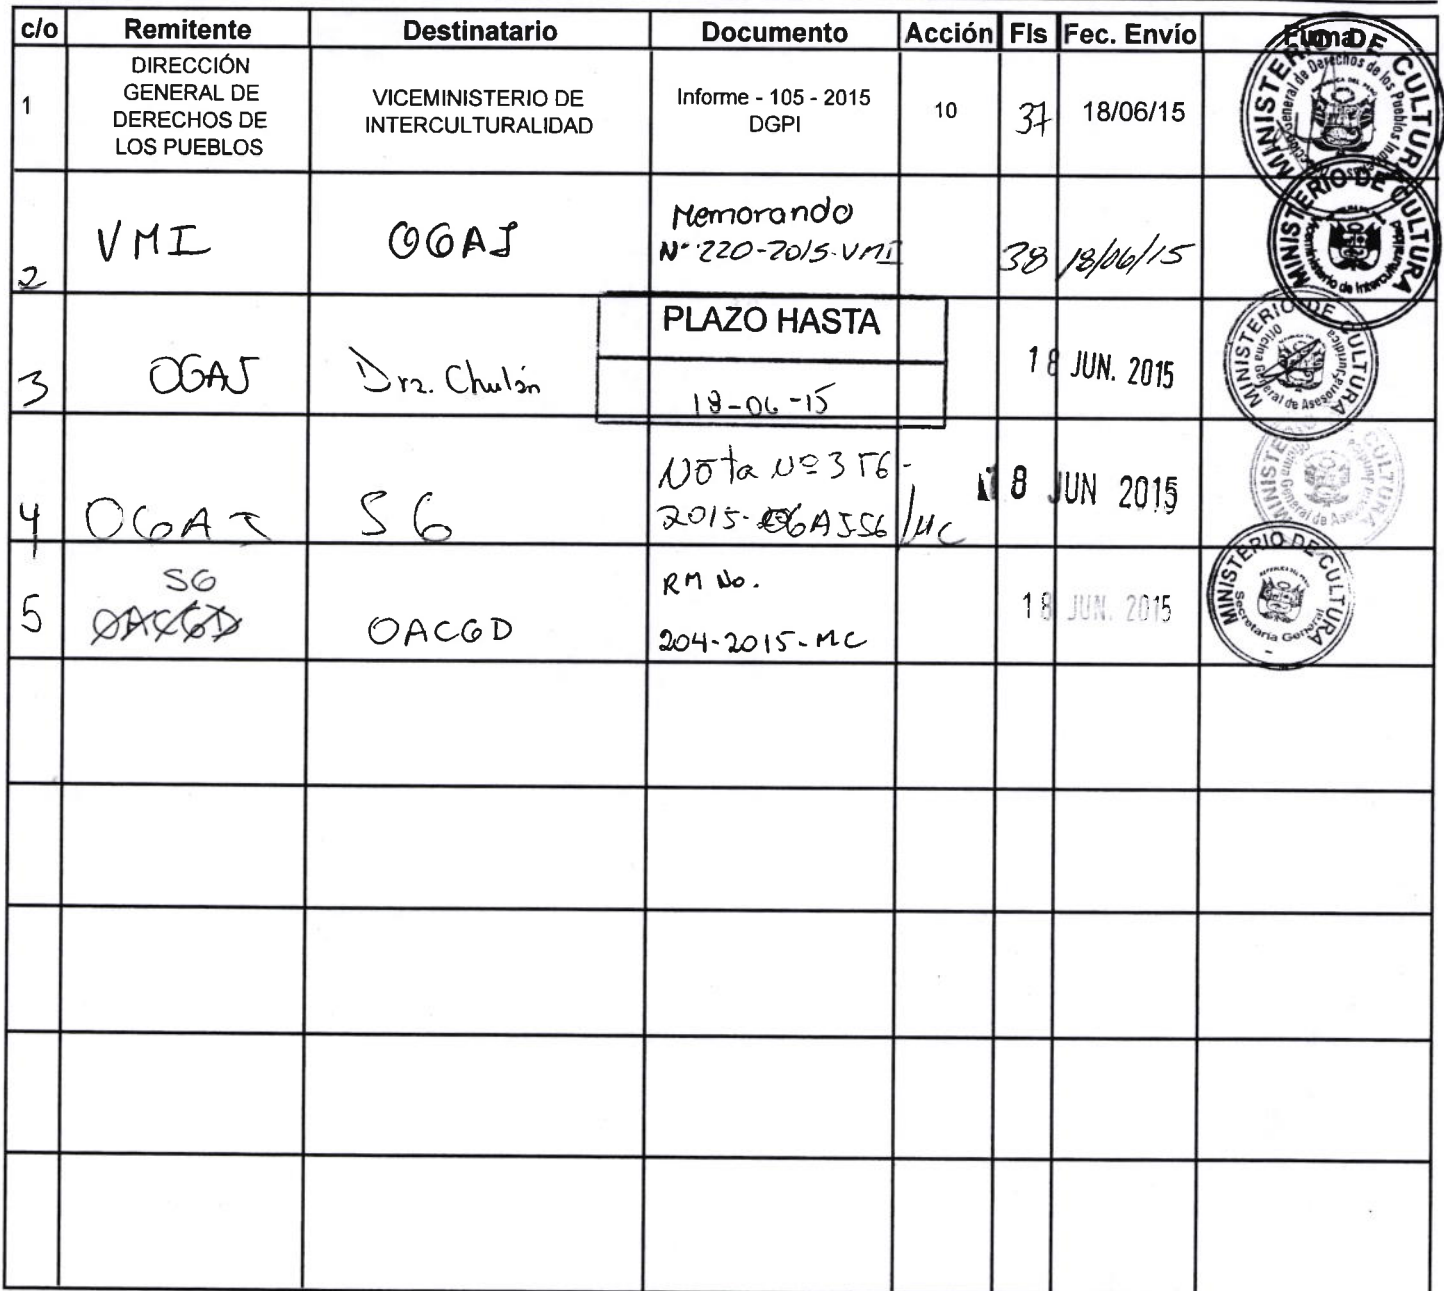 c/o Remitente Destinatario Documento Acción Fls Fec. Envío Firma
DIRECCIÓN
GENERAL DE
DERECHOS DE
LOS PUEBLOS
1
VICEMINISTERIO DE
INTERCULTURALIDAD
Informe - 105 - 2015
DGPI
10 37 18/06/15
MINISTERIO DE CULTURA
Dirección General de Derechos de los Pueblos
2 VMI OGAJ
Memorando
N° 220-2015-VMI
38 18/06/15
MINISTERIO DE CULTURA
Viceministerio de Interculturalidad
3 OGAJ Dra. Chulán
PLAZO HASTA
18-06-15
18 JUN. 2015
MINISTERIO DE CULTURA
Oficina General de Asesoría Jurídica
4 OGAJ SG
Nota Nº 356-
2015-OGAJ-SG/MC
18 JUN 2015
MINISTERIO DE CULTURA
Oficina General de Asesoría Jurídica
5 SG
OACGD
OACGD
RM No.
204-2015-MC
18 JUN. 2015
MINISTERIO DE CULTURA
Secretaría General